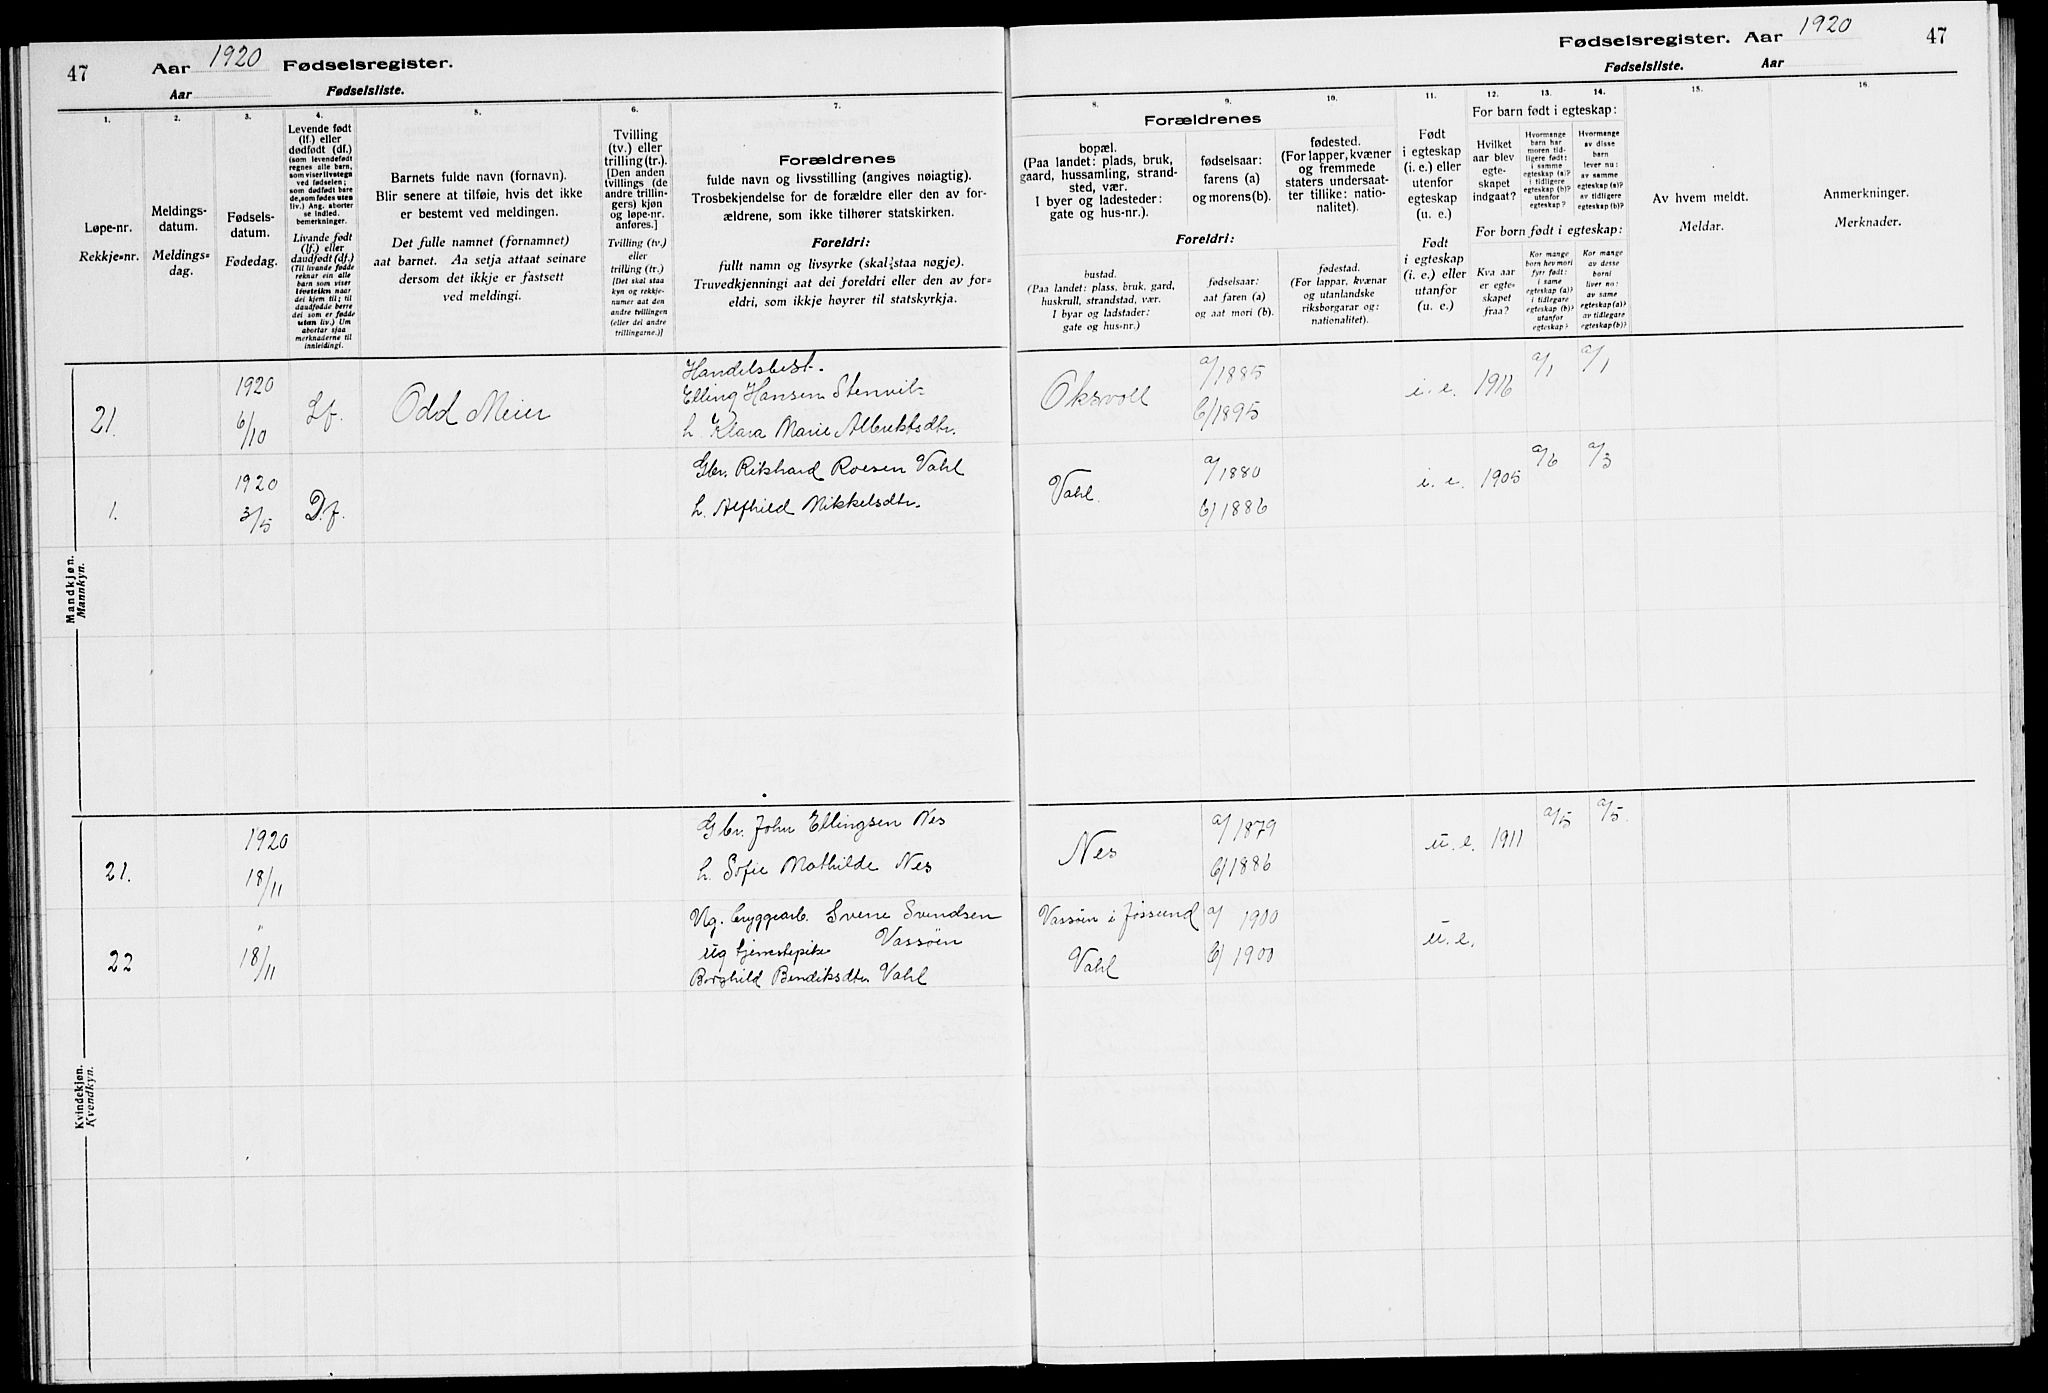 47
Aar 1920 Fødselsregister.
Aar Fødselsliste.
1.
Løpe-nr.
Rekkje-nr.
2.
Meldings-
datum.
Meldings-
dag.
3.
Fødsels-
datum.
Fødedag.
4.
Levende født
(lf.) eller
dødfødt (df.)
(som levendefødt
regnes alle barn,
som viser livstegn
ved fødselen;
som dødfødt bare
de, som fødes uten
liv.) Ang. aborter
se indled.
bemerkninger.
Livande født
(lf.) eller
daudfødt (df.)
(Til livande fødde
reknar ein alle
barn som viser
livsteikn naar
dei kjem til; til
daudfødde berre
dei som er fødde
utan liv.) Um
abortar sjaa
merknaderne til
innleidingi.
5.
Barnets fulde navn (fornavn).
Blir senere at tilføie, hvis det ikke
er bestemt ved meldingen.
Det fulle namnet (fornamnet)
aat barnet. Aa setja attaat seinare
dersom det ikkje er fastsett
ved meldingi.
6.
Tvilling
(tv.) eller
trilling (tr.).
[Den anden
tvillings (de
andre trillin-
gers) kjøn
og løpe-nr.
anføres.]
Tvilling (tv.)
eller
trilling (tr.)
[Det skal staa
kyn og rekkje-
numer aat den
andre tvillingen
(eller dei andre
trillingarne.)]
7.
Forældrenes
fulde navn og livsstilling (angives nøiagtig).
Trosbekjendelse for de forældre eller den av for-
ældrene, som ikke tilhører statskirken.
Foreldri:
fullt namn og livsyrke (skal staa nøgje).
Truvedkjenningi aat dei foreldri eller den av for-
eldri, som ikkje høyrer til statskyrkja.
Mandkjøn.
Mannkyn.
21.
1920
6/10
Lf.
Odd Meier
Handelsbest.
Elling Hansen Stenvik
h. Klara Marie Albriktsdtr.
1.
1920
3/5
D.f.
Gbr. Rikhard Roesen Vahl
h. Alfhild Mikkelsdtr.
Kvindekjøn.
Kvendkyn.
21.
1920
18/11
Gbr. John Ellingsen Nes
h. Sofie Mathilde Nes
22
"
18/11
Ug. bryggearb. Svene Svendsen
Vassøen
ug tjenestepike
Borghild Bendiksdtr. Vahl
Fødselsregister. Aar 1920
47
Fødselsliste. Aar
Forældrenes
8.
bopæl.
(Paa landet: plads, bruk,
gaard, hussamling, strand-
sted, vær.
I byer og ladesteder:
gate og hus-nr.).
9.
fødselsaar:
farens (a)
og morens (b).
10.
fødested.
(For lapper, kvæner
og fremmede
staters undersaat-
ter tillike: natio-
nalitet).
Foreldri:
bustad.
(Paa landet: plass, bruk, gard,
huskrull, strandstad, vær.
I byar og ladstader:
gate og hus-nr.)
fødselsaar:
aat faren (a)
og aat mori (b).
fødestad.
(For lappar, kvænar
og utanlandske
riksborgarar og:
nationalitet).
11.
Født
i egteskap
(i. e.) eller
utenfor
egteskap
(u. e.)
Født
i egteskap
(i. e.) eller
utanfor
(u. e.)
For barn født i egteskap:
12.
Hvilket
aar blev
egte-
skapet
indgaat?
13.
Hvormange
barn har
moren tid-
ligere født:
i samme
egteskap (a)?
i tidligere
egteskap (b)?
utenfor
egteskap?
14.
Hvormange
av disse
barn
lever nu:
av samme
egteskap (a)?
av tidligere
egteskap (b)?
For born født i egteskap:
Kva aar
er egte-
skapet
fraa?
Kor mange
born hev mori
fyrr født:
i same
egteskap (a)?
i tidlegare
egteskap (b)?
utanfor
egteskap?
Kor mange
av desse
borni
liver nu:
av same
egteskap (a)?
av tidlegare
egteskap (b)?
15.
Av hvem meldt.
Meldar.
16.
Anmerkninger.
Merknader.
Oksvoll
a/1885
b/1895
i. e.
1916
a/1
a/1
Vahl.
a/1880
b/1886
i. e.
1905
a/6
a/3
Nes
a/1879
b/1886
u. e.
1911
a/5
a/5.
Vassøen i Jøssund
a/ 1900
Vahl
b/ 1900
u. e.